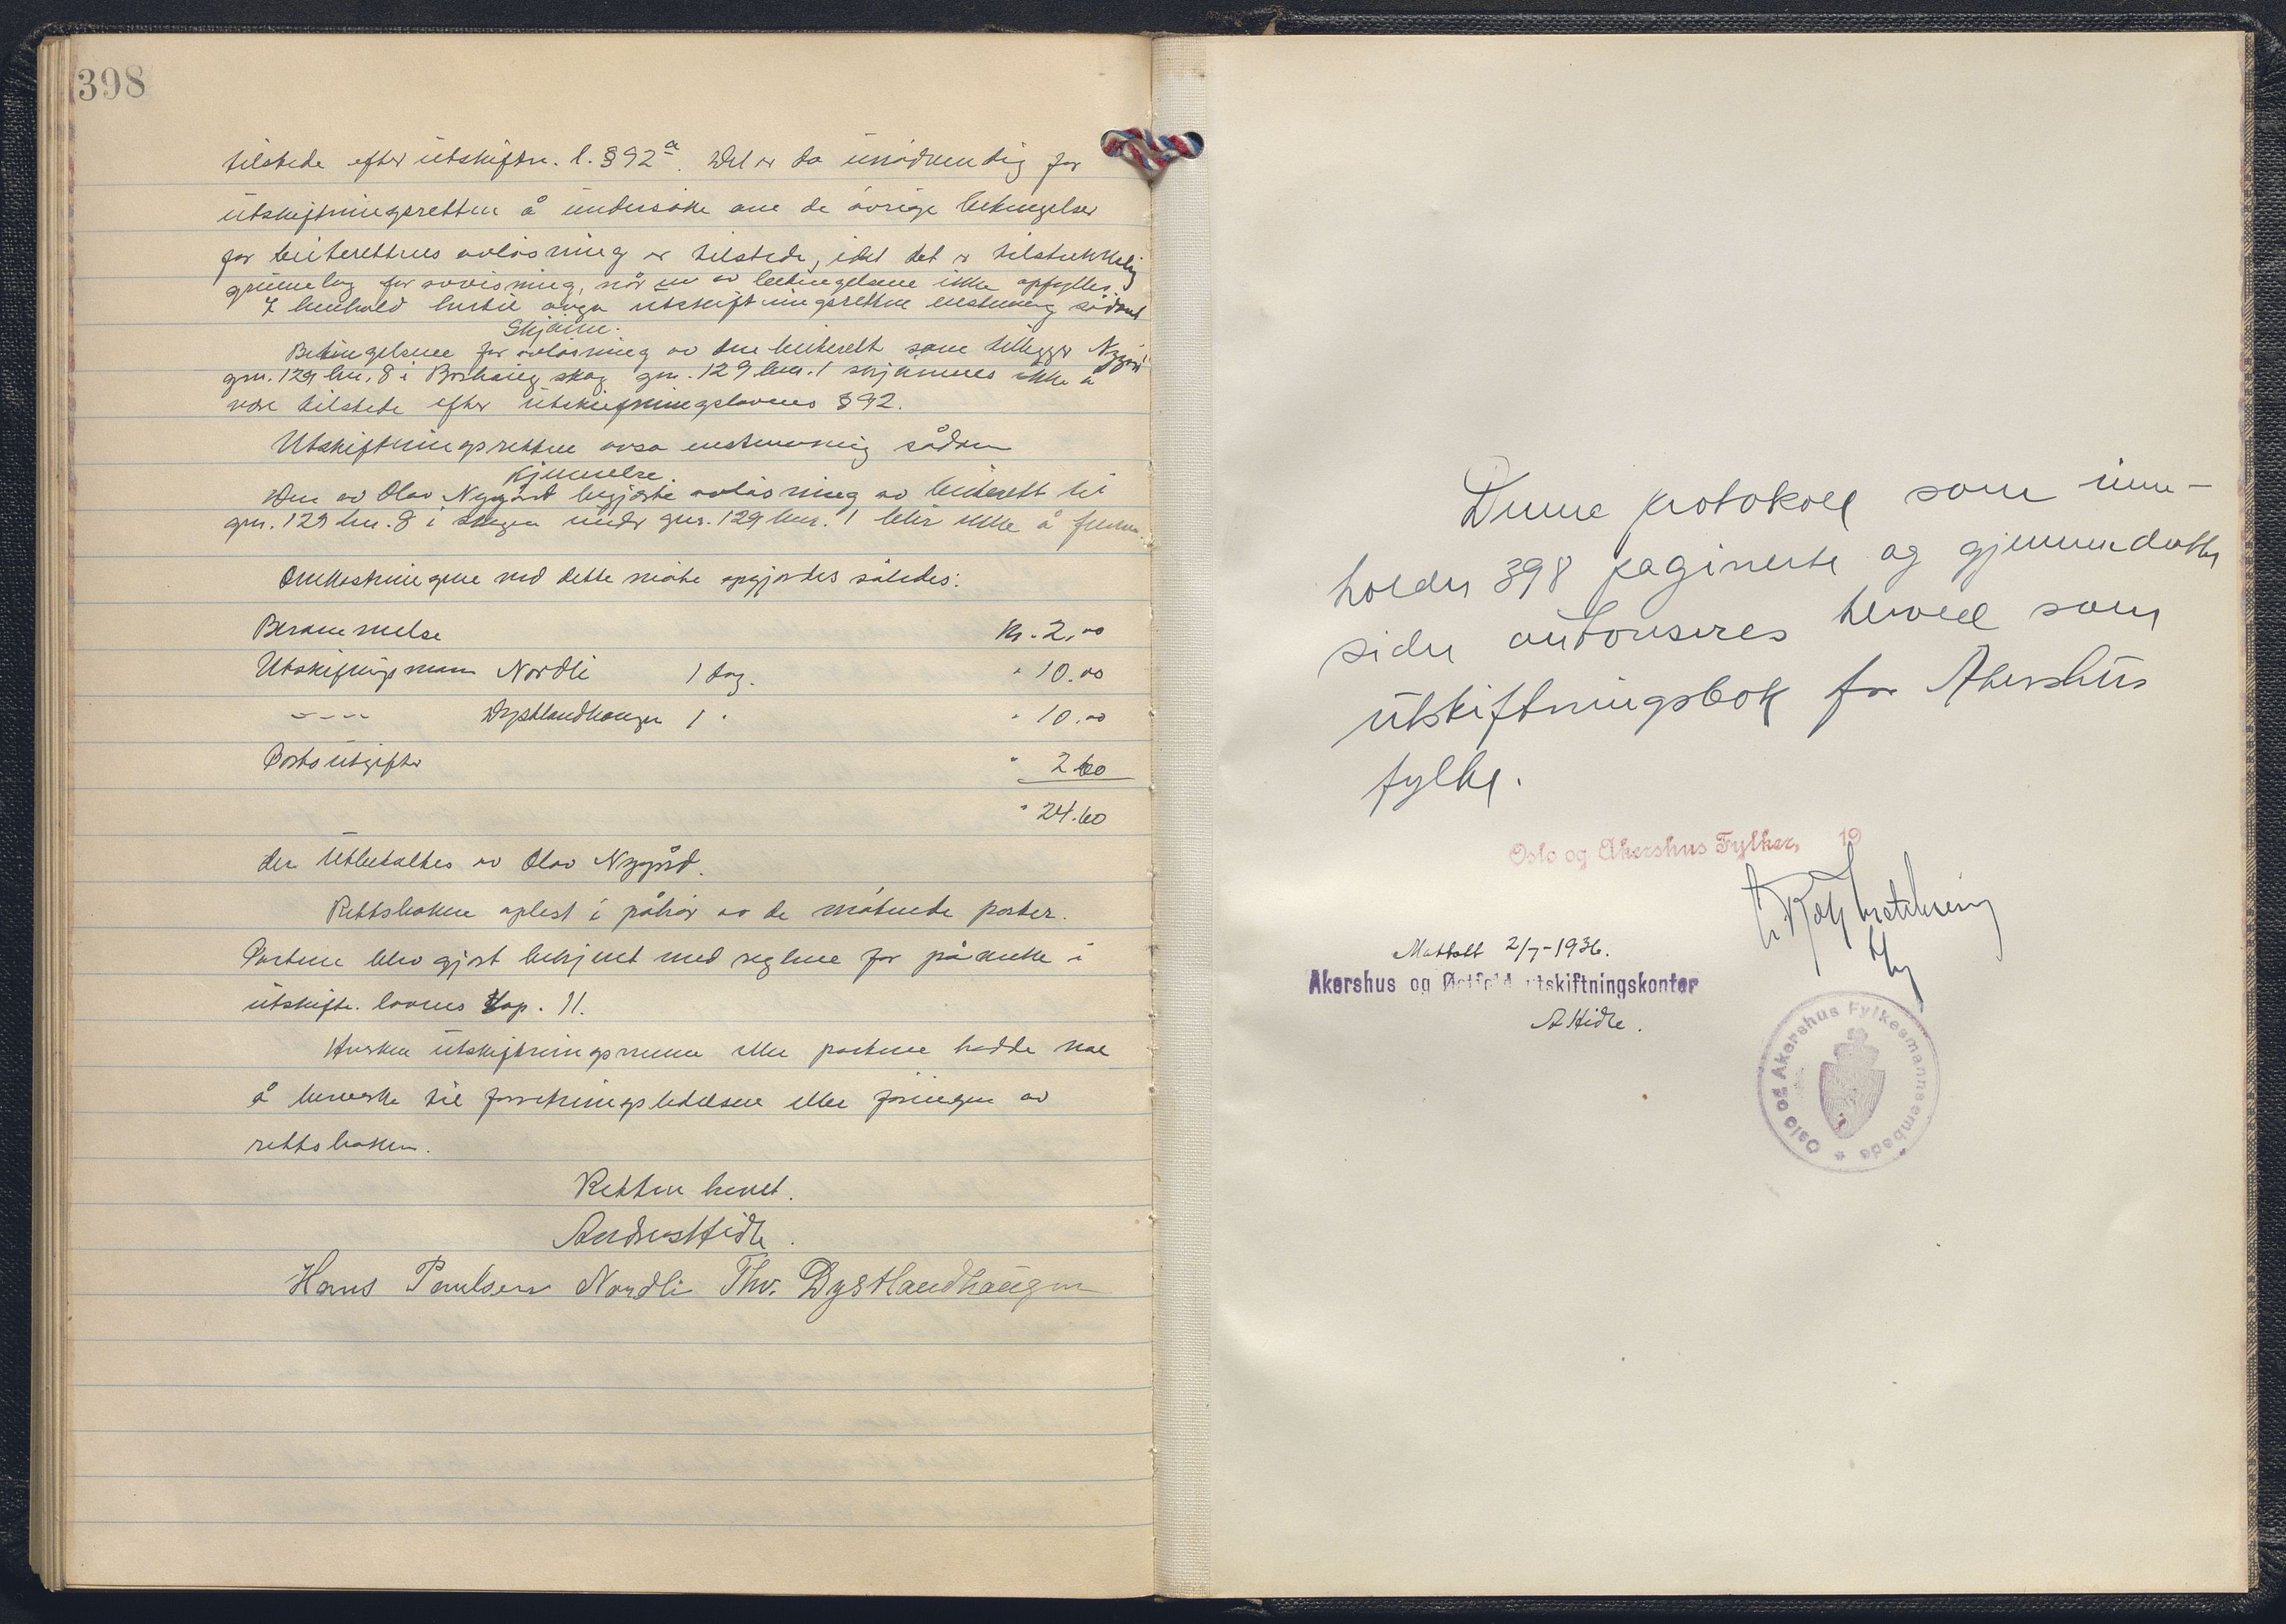 398
tilstede efter utskiftn. l. § 92 a. Det er da unødvendig for
utskiftningsretten å undersøke om de øvrige betingelser
for beiterettens avløsning er tilstede, idet det er tilstrekkelig
grunnlag for avvisning, når en av betingelsene ikke opfylles.
I henhold hertil avga utskiftningsretten enstemmig sådant
Skjønn.
Betingelsene for avløsning av den beiterett som tilligger Nygård
gnr. 129 bnr. 8 i Borhaug skog gnr. 129 bnr. 1 skjønnes ikke å
være tilstede efter utskiftningslovens § 92.
Utskiftningsretten avsa enstemmig sådan
Kjennelse.
Den av Olav Nygård begjærte avløsning av beiterett til
gnr. 129 bnr. 8 i skogen under gnr. 129 bnr. 1 blir ikke å fremme.
Omkostningene med dette møte opgjordes således:
Berammelse kr. 2,00
Utskiftningsmann Nordli 1 dag. " 10.00
---- Dystlandhaugen 1 " " 10.00
Portoutgifter " 2.60
" 24.60
der utbetaltes av Olav Nygård.
Rettsboken oplest i påhør av de møtende parter.
Partene blev gjort bekjent med reglene for påanke i
utskiftn. lovens kap. 11.
Hverken utskiftningsmenn eller partene hadde noe
å bemerke til forretningsledelsen eller føringen av
rettsboken.
Retten hevet.
Andreas Hidle.
Hans Paulsen Nordli Thv. Dystlandhaugen
Denne protokoll som inne-
holder 398 paginerte og gjennemdratte
sider autoriseres herved som
utskiftningsbok for Akershus
fylke.
Oslo og Akershus Fylker, 19
Mottatt 2/7-1936.
Akershus og Østfold utskiftningskontor
A Hidle.
Oslo og Akershus Fylkesmannsembede *